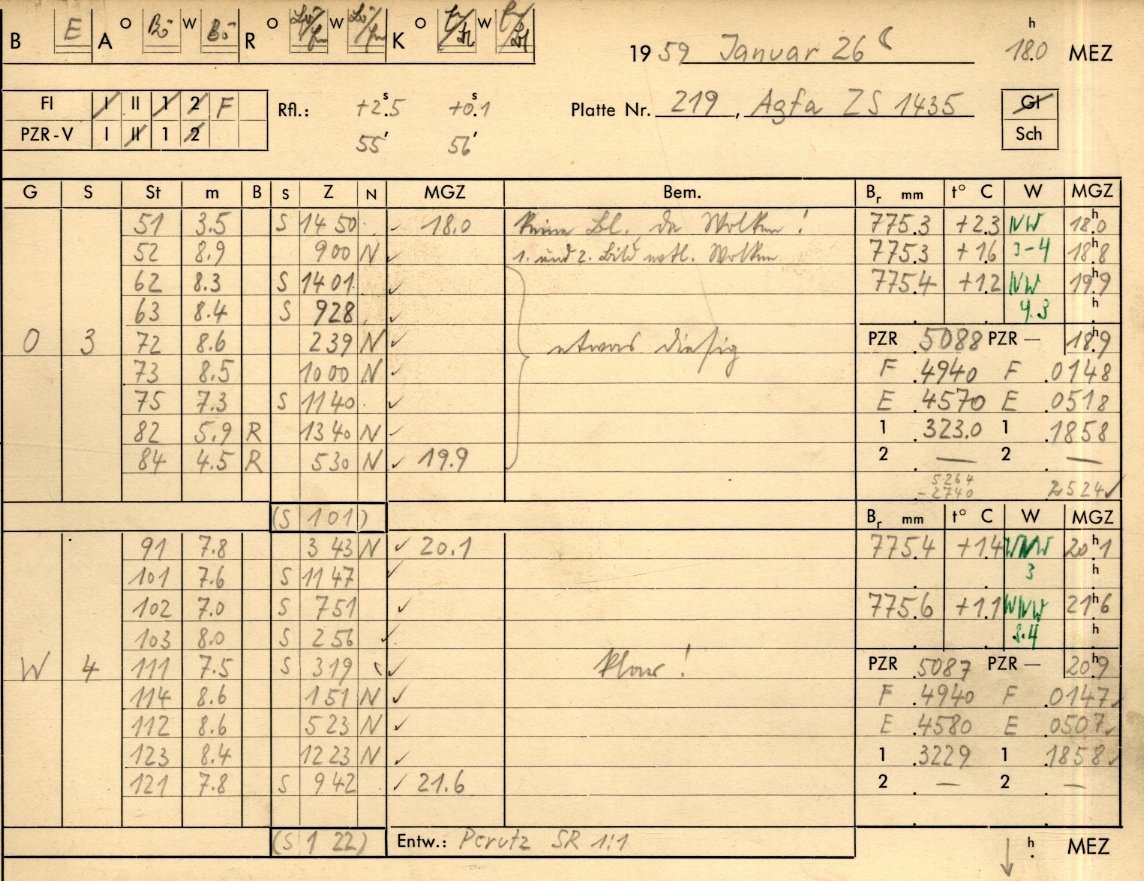 B E A O Bö W Bö R O W K O W
h
19 59 Januar 26 18.0 MEZ
FI I II 1 2 F
Rfl.: +2.s5 +0.s1
Platte Nr. 219, Agfa ZS 1435
Gl
PZR-V I II 1 2
55' 56'
Sch
G S St m B S Z N MGZ Bem. Br mm t° C W MGZ
51 3.5 S 14 50 ✓ 18.0 keine Bl. da Wolken! 775.3 +2.3 NW 18.h0
52 8.9 900 N 1. und 2. Bild evtl. Wolken 775.3 +1.6 3-4 18.h8
62 8.3 S 14 01 ✓ 775.4 +1.2 NW 19.h9
63 8.4 S 928 ✓ 4.3 h
O 3 72 8.6 239 N ✓ etwas diesig PZR .5088 PZR — 18.h9
73 8.5 10 00 N ✓ F .4940 F .0148
75 7.3 S 11 40 ✓ E .4570 E .0518
82 5.9 R 13 40 N ✓ 1 .3230 1 .1858
84 4.5 R 530 N ✓ 19.9 2 — 2 —
5264
-2740 2524 ✓
(S 1 01) Br mm t° C W MGZ
91 7.8 3 43 N ✓ 20.1 775.4 +1.4 WNW 20.h1
101 7.6 S 11 47 ✓ 3 h
102 7.0 S 751 ✓ 775.6 +1.1 WNW 21.h6
103 8.0 S 256 ✓ 3.4 h
W 4 111 7.5 S 319 ✓ klar! PZR .5087 PZR — 20.h9
114 8.6 151 N ✓ F .4940 F .0147 ✓
112 8.6 523 N ✓ E .4580 E .0507 ✓
123 8.4 12 23 N ✓ 1 .3229 1 .1858 ✓
121 7.8 S 942 ✓ 21.6 2 — 2 —
(S 1 22) Entw.: Perutz SR 1:1 ↓ h MEZ